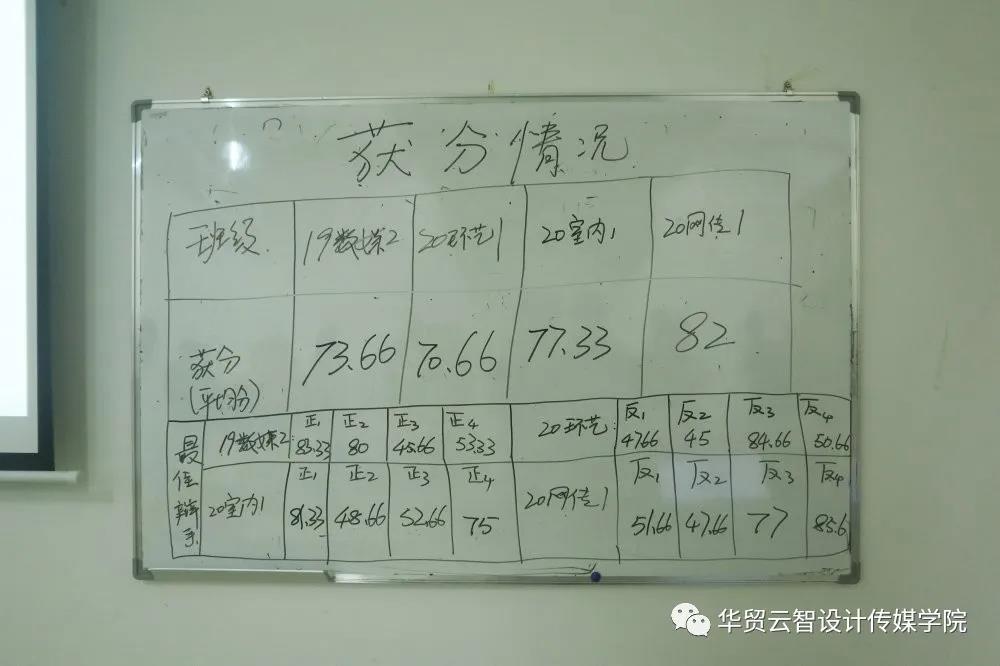 获分情况
班级 19数媒2 20环艺1 20室内1 20网传1
获分(平均分) 73.66 70.66 77.33 82
最佳辩手
19数媒2: 正1 正2 正3 正4 20环艺: 反1 反2 反3 反4
83.33 80 45.66 53.33 47.66 45 84.66 50.66
20室内1 正1 正2 正3 正4 20网传1 反1 反2 反3 反4
81.33 48.66 52.66 75 51.66 47.66 77 85.6
华贸云智设计传媒学院